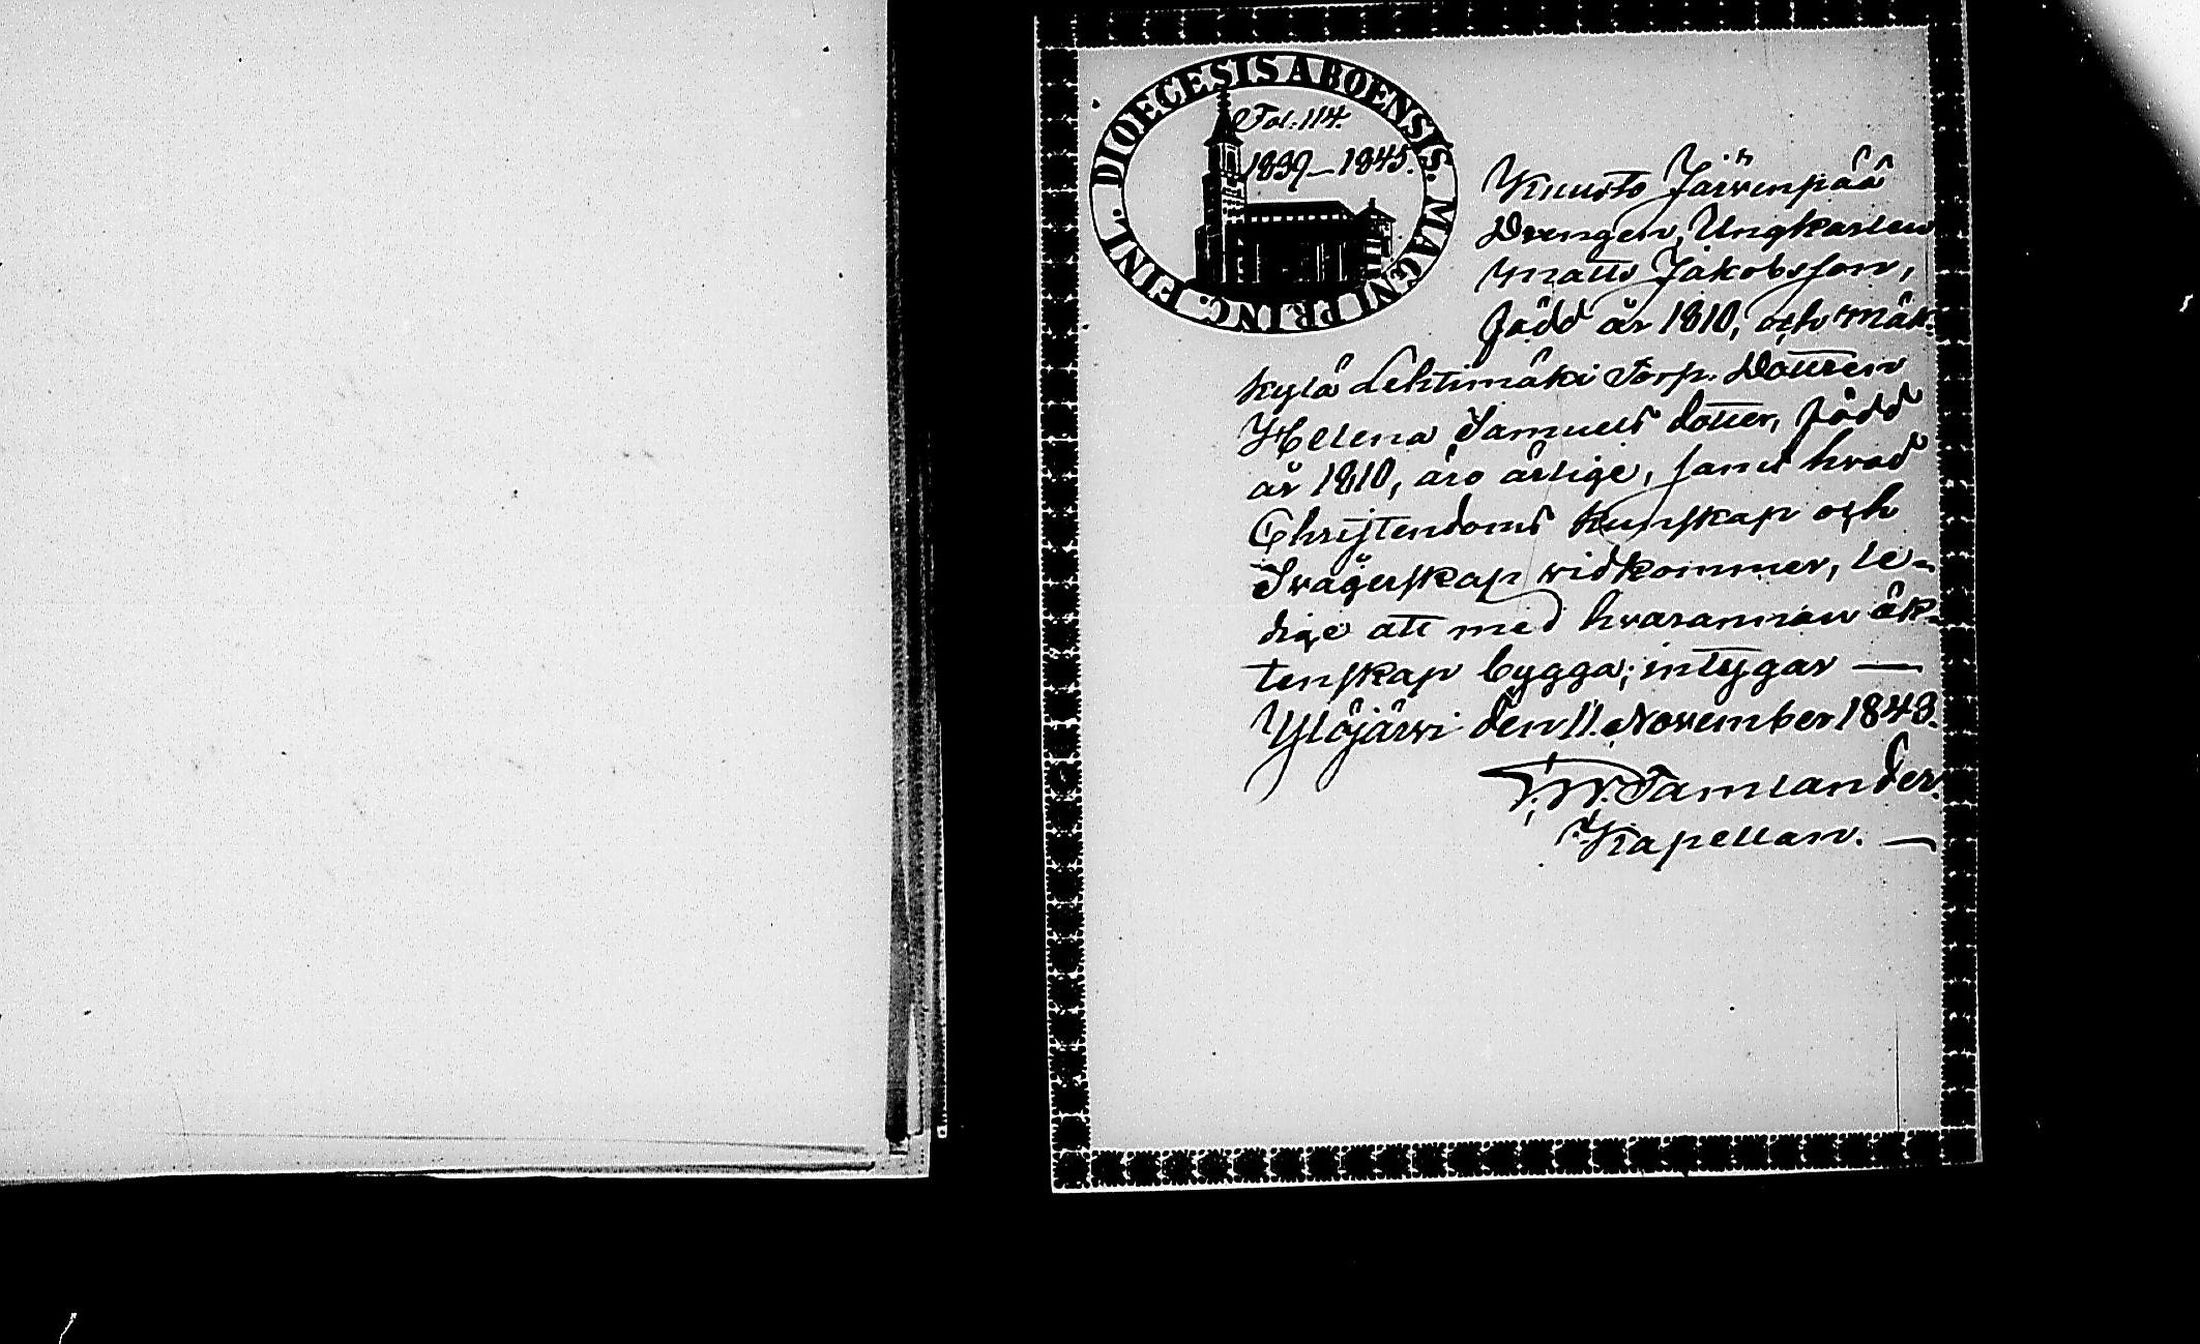 DIOECESIS ABOENSIS. MAGNI PRINC. FINL.
Fol. 114.
1839–1845.
Knuuto Järvenpää
Drengen, Ungkarlen
Matts Jakobsson,
född år 1810, och Mäk-
kylä Lehtimäki Torp. Dottren
Helena Samuels dotter, född
år 1810, äro ärlige, samt hvad
Christendoms kunskap och
Svågerskap vidkommer, le-
dige att med hvarannan äk-
tenskap bygga; intygar —
Ylöjärvi den 11. November 1843.
Tamlander.
Kapellan. —